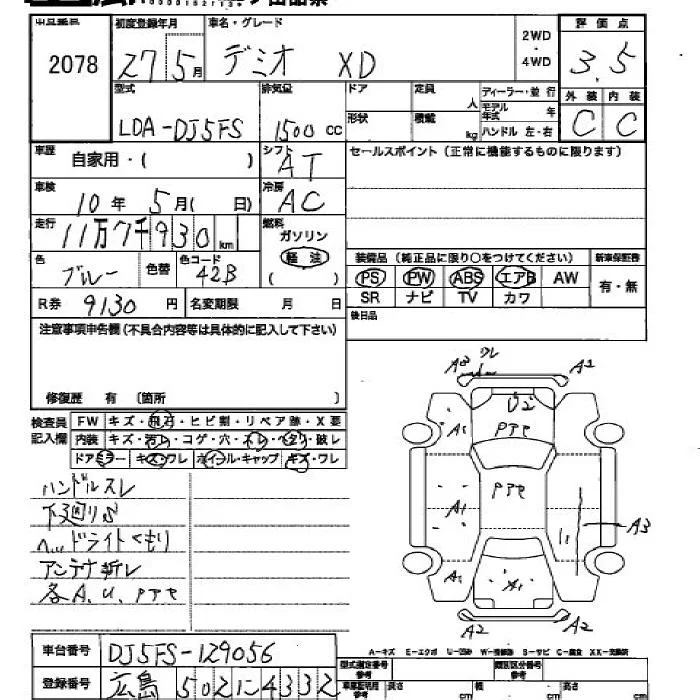 初度登録年月
車名・グレード
2WD
・
4WD
評価点
2078
27 5月
デミオ XD
3.5
型式
排気量
ドア
定員
人
ディーラー・並行
外装
内装
LDA-DJ5FS
1500 cc
形状
積載
kg
モデル年式
年
ハンドル 左・右
C
C
車歴
自家用・( )
シフト
AT
セールスポイント(正常に機能するものに限ります)
車検
10年 5月( 日)
冷房
AC
走行
11万7千930km
燃料
ガソリン
軽油
( )
色
ブルー
色替
色コード
42B
装備品(純正品に限り○をつけてください)
新車保証書
PS PW ABS エアB AW
有・無
SR ナビ TV カワ
R券 9130円
名変期限 月 日
後日品
注意事項申告欄(不具合内容等は具体的に記入して下さい)
修復歴 有 〔箇所 〕
検査員記入欄
FW キズ・飛石・ヒビ割・リペア跡・X要
内装 キズ・汚レ・コゲ・穴・スレ・ヘタリ・破レ
ドアミラー キズ・ワレ ホイール・キャップ キズ・ワレ
ハンドルスレ
下廻りサビ
ヘッドライトくもり
アンテナ折レ
各A、U、Pアセ
A3
ワレ
A2
U2
Pアセ
A1
Pアセ
A1
A3
A1
A1
A2
A2
A-キズ E-エクボ U-凹み W-補修跡 S-サビ C-腐食 XX-交換済
車台番号
DJ5FS-129056
型式指定番号
参考
類別区分番号
参考
登録番号
広島 502 に 4332
車庫証明用
参考
長さ
cm
幅
cm
高さ
cm